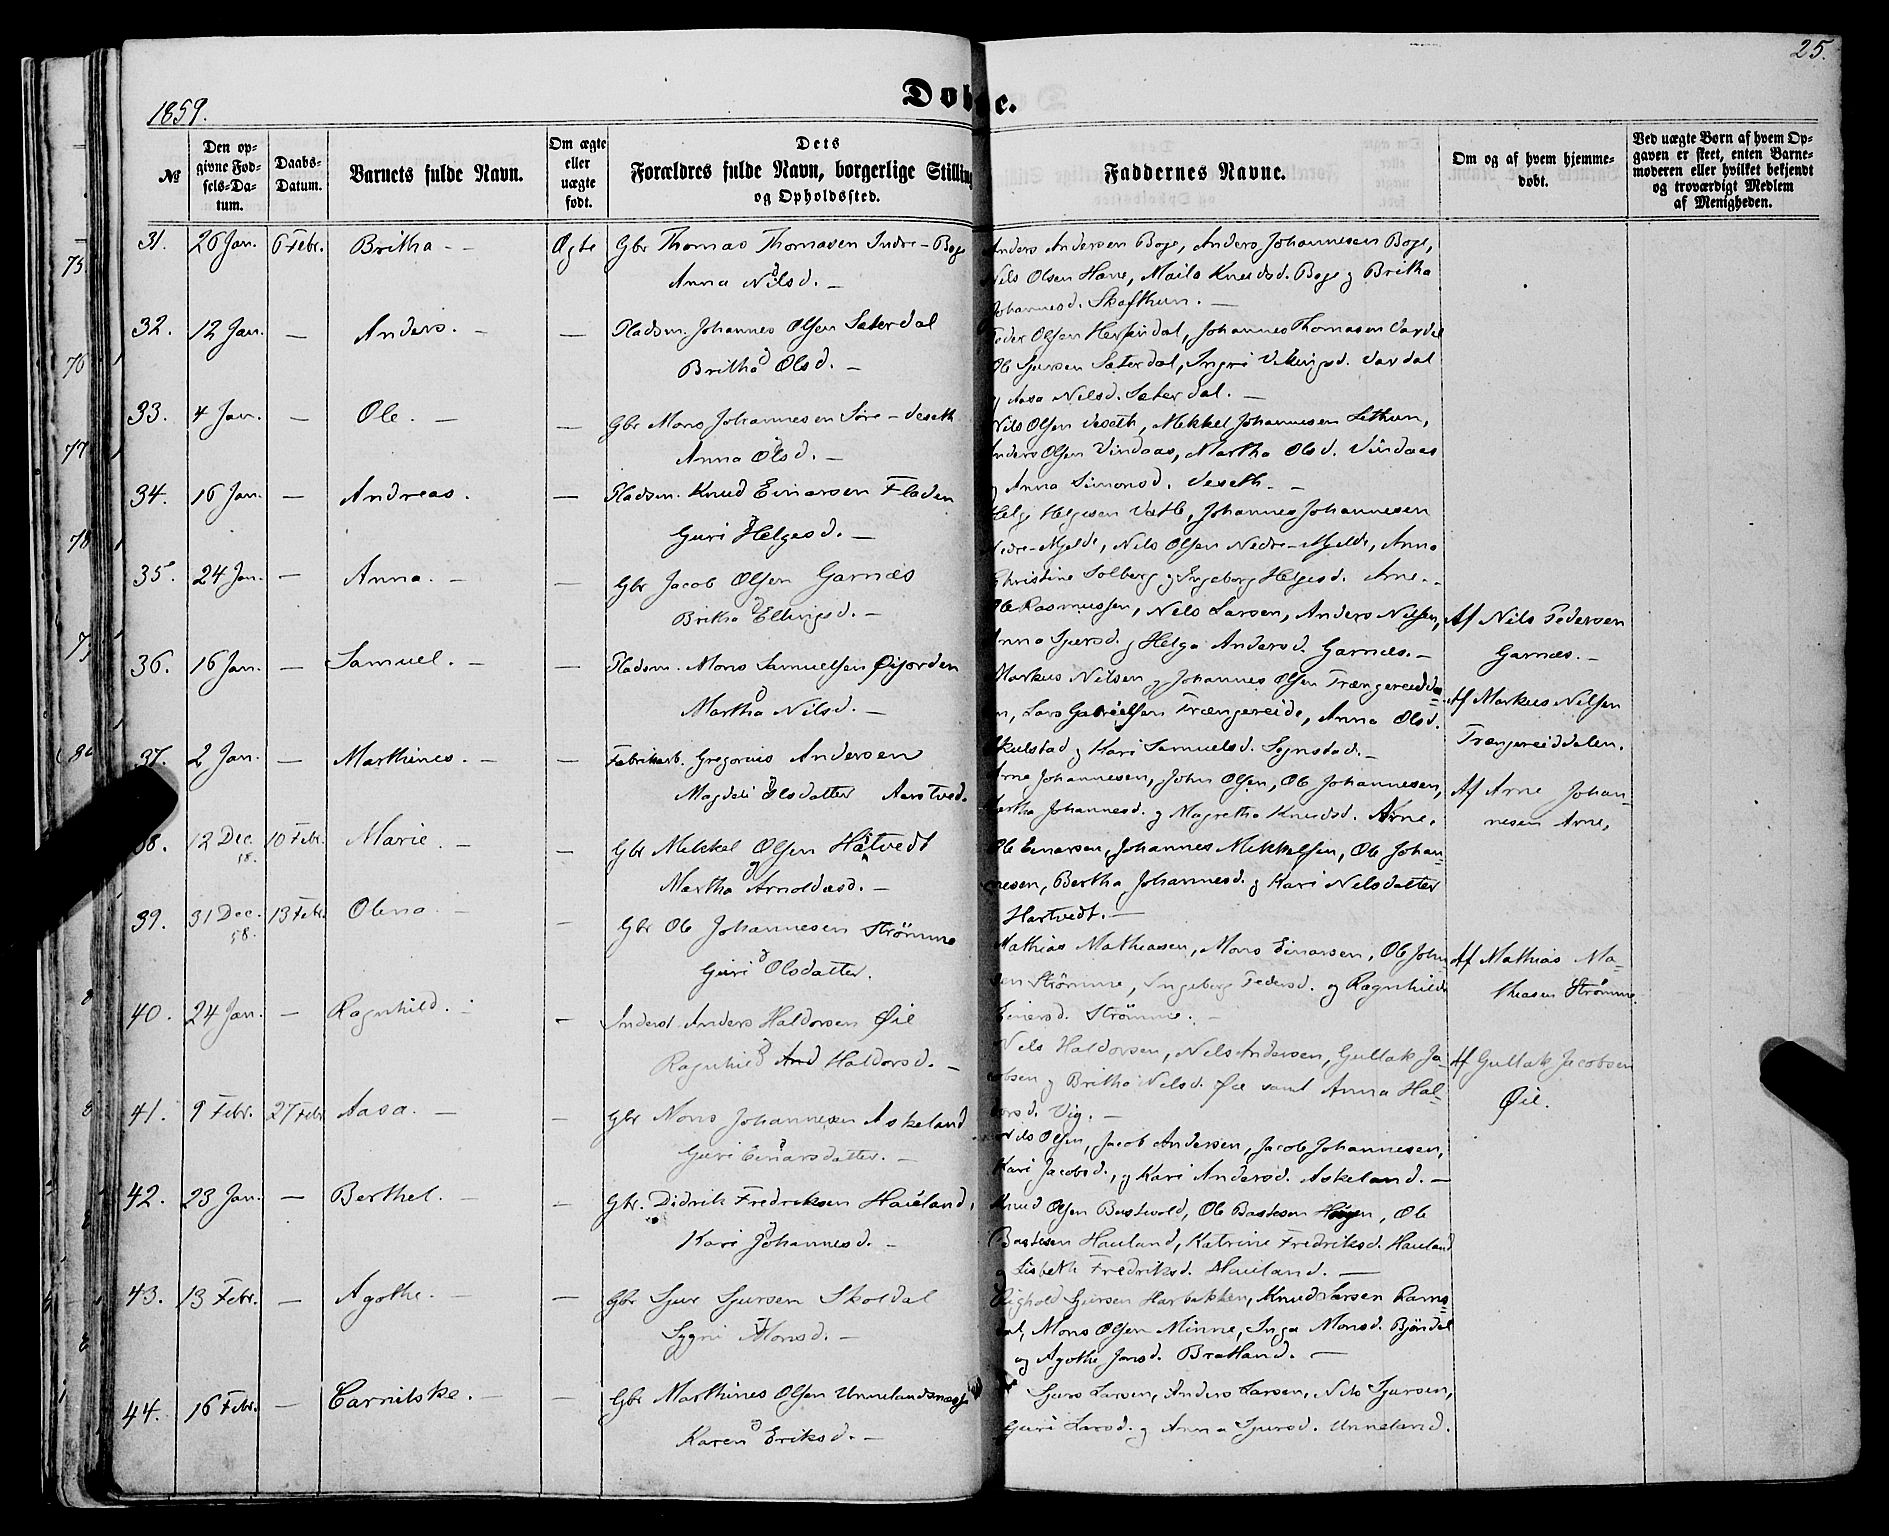 25.
Døbte.
1859.
№
Den opgivne Fødsels-Datum.
Daabs-Datum.
Barnets fulde Navn.
Om ægte eller uægte født.
Dets Forældres fulde Navn, borgerlige Stilling og Opholdssted.
Faddernes Navne.
Om og af hvem hjemmedøbt.
Ved uægte Børn af hvem Opgaven er skeet, enten Barnemoderen eller hvilket bekjendt og troværdigt Medlem af Menigheden.
31. 26 Jan. 6 Febr. Britha - - Ægte Gbr Thomas Thomasen Indre-Boge
Anna Nilsd. -
Anders Andersen Boge, Anders Johannesen Boge,
Nils Olsen Hane, Maila Knudsd. Boge og Britha
Johannesd. Skafthun. -
32. 12 Jan. - Anders. - - Pladsm. Johannes Olsen Sæterdal
Britha Olsd. -
Peder Olsen Herfindal, Johannes Thomasen Vardal
Ole Sjursen Sæterdal, Ingri Vikingsd. Vardal
og Aasa Nilsd. Sæterdal. -
33. 4 Jan. - Ole. - - Gbr Mons Johannesen Søre-Veseth
Anna Olsd. -
Nils Olsen Veseth, Mikkel Johannesen Lethun,
Anders Olsen Vindaas, Martha Olsd. Vindaas
og Anna Simonsd. Veseth. -
34. 16 Jan. - Andreas. - Pladsm. Knud Einarsen Fladen
Guri Helgesd. -
Helge Helgesen Vatle, Johannes Johannesen
Nedre-Mjelde, Nils Olsen Nedre-Mjelde, Anna
Christine Solberg og Ingeborg Helgesd. Arne. -
35. 24 Jan. - Anna. - - Gbr Jacob Olsen Garnæs
Britha Ellingsd. -
Ole Rasmussen, Nils Larsen, Anders Nilsen,
Anna Sjursd. og Helga Andersd. Garnæs. -
Af Nils Pedersen
Garnæs. -
36. 16 Jan. - Samuel. - - Pladsm. Mons Samuelsen Øijorden
Martha Nilsd. -
Markus Nilsen og Johannes Olsen Trængereidda-
len, Lars Gabrielsen Trængereide, Anna Olsd.
Skulstad og Kari Samuelsd. Sognstad. -
Af Markus Nilsen
Trængereiddalen.
37. 2 Jan. - Marthines. - - Fabrikarb. Gregorius Andersen
Magdeli Olsdatter Aarstved.
Arne Johannesen, John Olsen, Ole Johannesen,
Martha Johannesd. og Magretha Knudsd. Arne.
Af Arne Johan-
nesen Arne,
38. 12 Dec. 58. 10 Febr. Marie. - - Gbr Mikkel Olsen Hatvedt
Martha Arnoldæsd. -
Ole Einarsen, Johannes Mikkelsen, Ole Johan-
nesen, Bertha Johannesd. og Kari Nilsdatter
Hartvedt. -
39. 31 Dec. 58. 13 Febr. Olena - - Gbr Ole Johannesen Strömme
Guri Olsdatter.
Mathias Mathiasen, Mons Einarsen, Ole John
sen Strömme, Ingeborg Pedersd. og Ragnhilde
Einersd. Strömme. -
Af Mathias Ma-
thiasen Strömme.
40. 24 Jan. - Ragnhild. - - Inderst Anders Haldorsen Øie
Ragnhild And Haldorsd. -
Nils Haldorsen, Nils Andersen, Gullak Ja-
cobsen og Britha Nilsd. Øie samt Anna Hal-
dorsd. Vig. -
Af Gullak Jacobsen
Øie.
41. 9 Febr. 27 Febr Aasa. - - Gbr Mons Johannesen Askeland
Guri Einarsdatter. -
Nils Olsen, Jacob Andersen, Jacob Johannesen,
Kari Jacobsd., og Kari Andersd. Askeland. -
42. 23 Jan. - Berthel. - - Gbr. Didrik Fredriksen Haueland,
Kari Johannesd. -
Knud Olsen Burkvold, Ole Bastesen, Ole
Bastesen Hauland, Katrine Fredriksd. Hauland
og Lisbeth Fredriksd. Haueland. -
43. 13 Febr. - Agothe. - - Gbr Sjur Sjursen Skoldal
Sygni Monsd. -
Sjursen Harbakken, Knud Larsen Rams-
dal, Mons Olsen Minne, Inga Monsd. Bjöndal
og Agothe Jonsd. Bratland. -
44. 16 Febr. - Carnilske. - - Gbr Marthines Olsen Unnelandsnæsse
Karen Eriksd. -
Sjurs Larsen, Anders Larsen, Nils Sjursen,
Guri Larsd. og Anna Sjursd. Unneland.
75
76
77
78